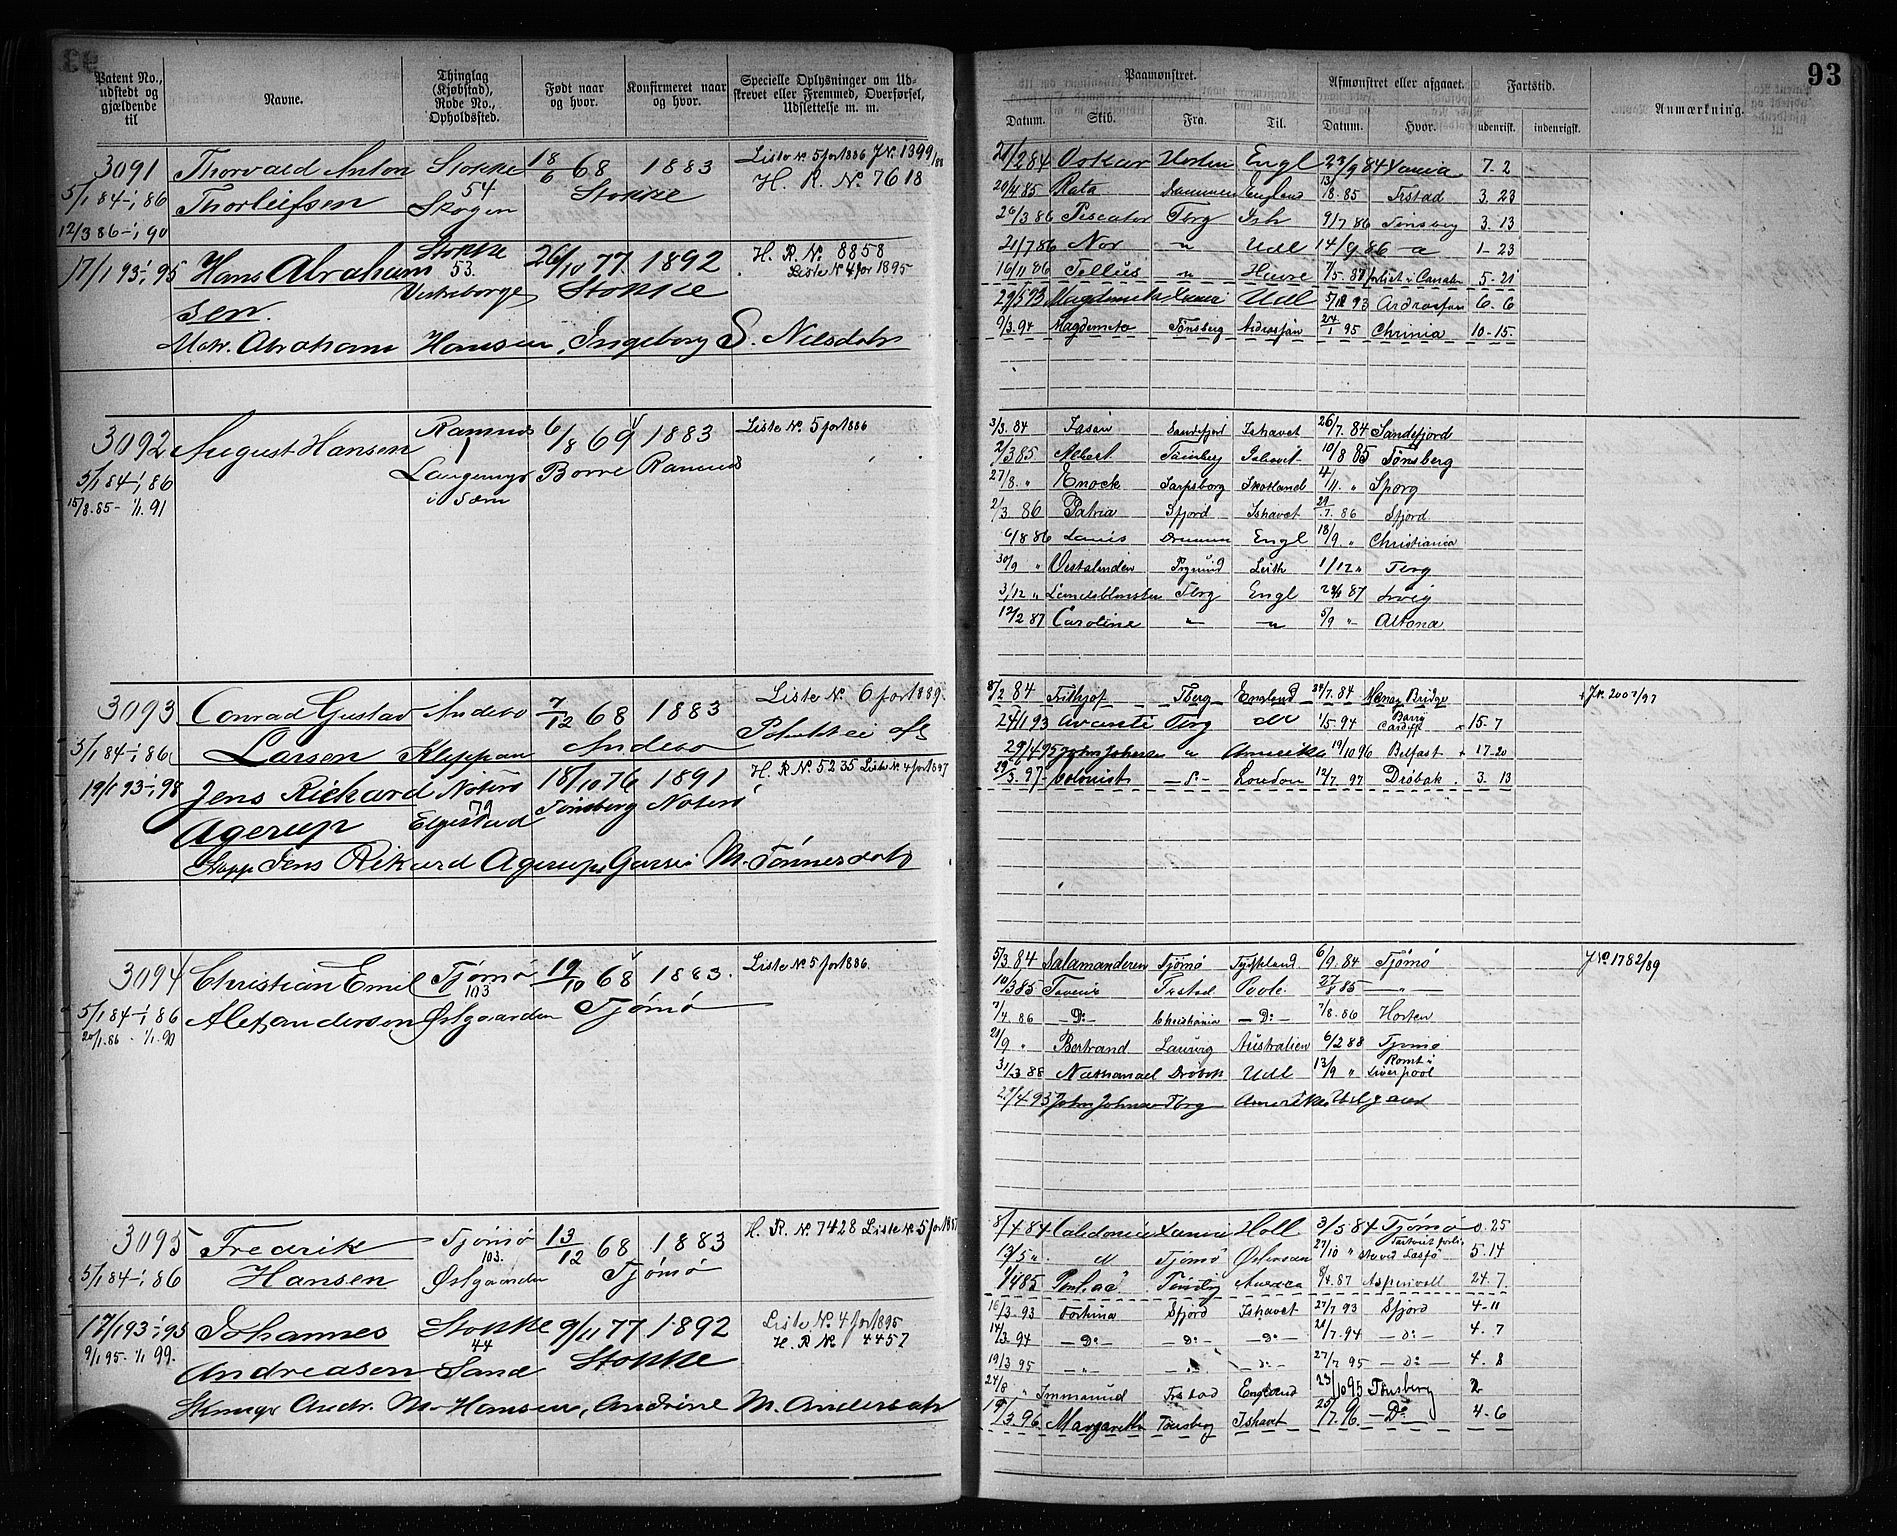 93
Patent No., udstedt og gjældende til
Navne.
Thinglag (Kjøbstad), Rode No., Opholdssted.
Født naar og hvor.
Konfirmeret naar og hvor.
Specielle Oplysninger om Udskrevet eller Fremmed, Overførsel, Udslettelse m. m.
Paamønstret.
Datum. Skib. Fra. Til.
Afmønstret eller afgaaet.
Datum. Hvor.
Fartstid.
udenrigsk. indenrigsk.
Anmærkning.
3091 Thorvald Anton Stokke 18/6 68 1883 Liste N. 5 for 1886 J.N. 1399/88
5/1 84-1/1 86 Thorleifsen 54 Skogen Stokke H. R. No. 7618
12/3 86-1/1 90
17/1 93-1/1 95 Hans Abraham Stokke 26/10 77 1892 H. R. No. 8858
sen. 53. Stokke Liste N. 4 for 1895
Matr. Abraham Hansen, Ingeborg S. Nilsdatr
Oskar Horten Engl 7-2
20/4 85 Rata Drammen England 13/8.85 Frstad 3. 23
Pescator Tbrg Ish 9/7 86 Tønsberg 3. 13
21/7 86 Nor " Udl 14/9 86 " 1-23
16/11 86 Tellus " Havre 7/5.87 5-21
Udl 5/12 93 Ardrossan 6. 6
9/3.94 Magdemeta Tønsberg Ardrossan 24/1 95 Chrinia 10-15
3092 August Hansen Ramnes 6/8 69 1883 Liste N. 5 for 1886
5/1 84-1/1 86 1 Borre Ramnes
15/8.85-1/1.91 i Sæm
3/3.84 Jasön Sandefjord Ishavet 26/7.84 Sandefjord
2/3 85 Albert Tønsberg Ishavet 10/8 85 Tønsberg
27/8. " Enock Sarpsborg Skotland 4/11 " Spbrg
2/3 86 Patria Sfjord Ishavet 29/7.86 Sfjord
6/8 86 Drammen Engl 18/9 " Christiania
30/9 " Vestalinden Prgrund Leith 1/12 " Tbrg
3/12 " Landsblomsten Tbrg Engl 87 Lrvig
12/2 87 Caroline " " 5/9 " Altona
3093 Conrad Gustav Andebo 7/12 68 1883 Liste N. 6 for 1889.
5/1 84-1/1 86 Larsen Kleppan Andebo
19/1 93-1/1 98 Jens Rickard Nøterø 18/10 76 1891 H. R. No. 5235 Liste N. 4 for 1897
Agerup 79 Elgestad Tønsberg Nøterø
Jens Rikard Agerup, M. Tönnesdatr
8/2 84 Frithjof Tberg England 24/7.84 Menay Bridge J.N. 2007/97
24/1 93 Avanti Tbrg 1/5.94 Barry Cardiff 15. 7
29/4 95 John Johnson " Amerika 19/10 96 Belfast + 17-20
29/3.97 Colonist London 12/7.97 Drøbak. 3. 13
3094 Christian Emil Tjømø 19/10 68 1883. Liste N. 5 for 1886.
5/1 84-1/1 86 Alexanderson 103 Østgaarden Tjømø
20/1.86-1/1.90
5/3.84 Salamanderen Tjømø Tyskland. 6/9.84 Tjømø J.No. 1782/89
10/3 85 Frstad Poole. 27/8 85 — " —
7/4.86 — D: — Christiania — D: — 7/8.86 Horten
21/9 " Bertrand Laurvig Australien 6/2 88 Tjømø
31/3 88 Nathanael Drøbak Udl 13/9 " Liverpool
27/4 93 John Johnson Tbrg Amerika Udgaaed
3095 Fredrik Tjømø 13/12 68 1883 H. R. No. 7428 Liste N. 5 for 1887
5/1 84-1/1 86 Hansen 103. Østgaarden Tjømø
17/1 93-1/1 95 Johannes Stokke 9/11 77 1892 Liste N. 4 for 1895
9/1 95-1/1 99. Andreasen 44 Sand Stokke H. R. No. 4457
Andr. M. Hansen, Andrine M. Andersdatr
8/4 84 Caledonia Holl 3/5 84 Tjømø 0. 25
13/5 " " Tjømø Østersøen 27/10 " 5. 14
8/4.87 Aspinvall 24. 7
16/3.93 Fortuna Sfjord Ishavet 27/7 93 Sfjord 4-11
14/3.94 — D: — — D: — — D: — 28/7.94 — D: — 4. 7
19/3 95 — " — — " — — D: — 27/7 95 — D: — 4. 8
24/8 " Immanuel Frstad England 23/10 95 Tønsberg 2
19/3.96 Margareth Tønsberg Ishavet 25/7.96. — D: — 4-6